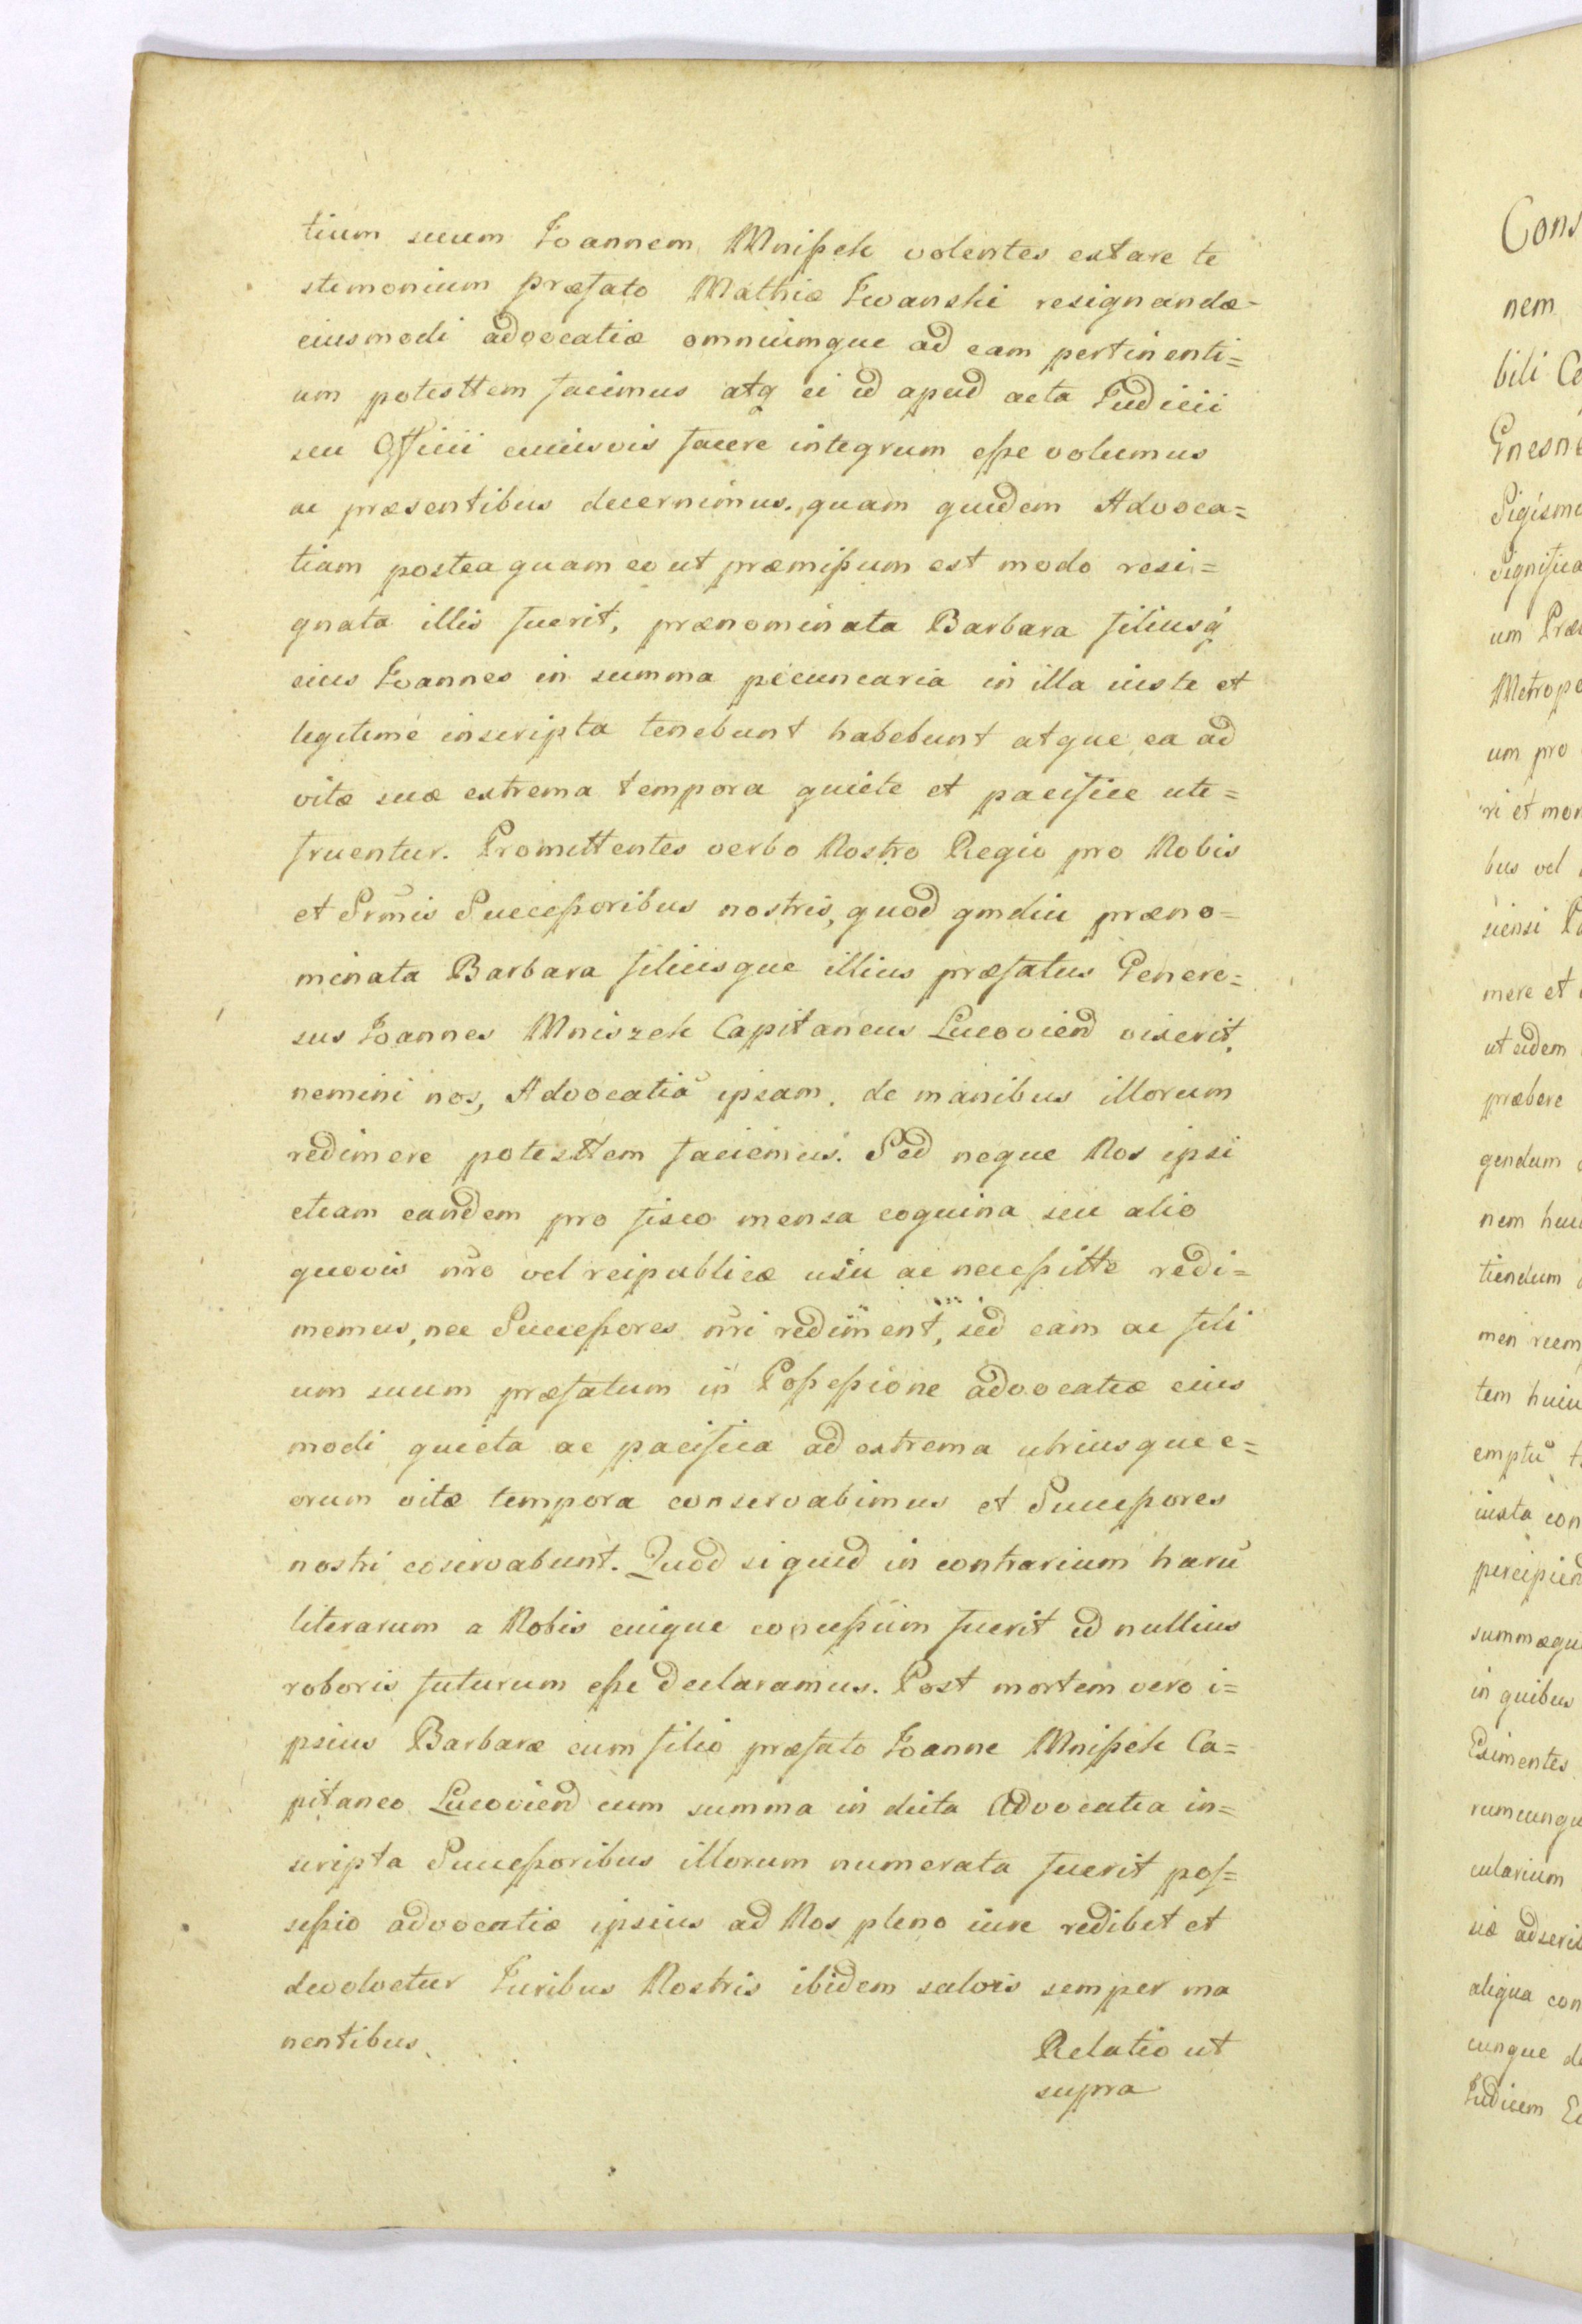 tium suum Joannem Mniszek volentes extare te
stimonium præfato Mathiæ Iwanski resignandæ
eiusmodi advocatiæ omniumque ad eam pertinenti=
um potesttem facimus atq ei id apud acta Iudicii
seu Officii cuiusvis facere integrum esse volumus
ac præsentibus decernimus, quam quidem Advoca=
tiam posteaquam eo ut præmissum est modo resi=
gnata illis fuerit, prænominata Barbara filiusq
eius Joannes in summa pecunearia in illa iuste et
legitime inscripta tenebunt habebunt atque ea ad
vitæ suæ extrema tempora quiete et pacifice ute=
fruentur. Promittentes verbo Nostro Regio pro Nobis
et Srmis Successoribus nostris, quod qmdiu præno=
minata Barbara filiusque illius præfatus Genero=
sus Joannes Mniszek Capitaneus Lucovien̄ vixerit,
nemini nos, Advocatiā ipsam de manibus illorum
redimere potesttem faciemus. Sed neque Nos ipsi
etiam eandem pro fisco mensa coquina seu alio
quovis nr̄o vel reipublicæ usu ac necessitte redi=
memus, nec Successores nr̄i rediment, sed eam ac fili
um suum præfatum in Possessione advocatiæ eius
modi quieta ac pacifica ad extrema utriusque e=
orum vitæ tempora conservabimus et Successores
nostri coservabunt. Quod si quid in contrarium harū
literarum a Nobis cuique concessum fuerit id nullius
roboris futurum esse declaramus. Post mortem vero i=
psius Barbaræ cum filio præfato Joanne Mniszek Ca=
pitaneo Lucovien̄ cum summa in dicta Advocatia in=
scripta Successoribus illorum numerata fuerit pos=
sessio advocatiæ ipsius ad Nos pleno iure redibet et
devolvetur Iuribus Nostris ibidem salvis semper ma
nentibus.
Relatio ut
supra
Cons
nem
bili Ce
Gnesne
Sigismu
Significa
um Præ
Metropo
um pro
ri et mor
bus vel
siensi
mere et
ut eidem
præbere
gendum
nem huiu
tiendum
men reem
tem huiu
emptū
iuxta con
percipien
summæqu
in quibus
Eximentes
rumcunqu
cularium
siæ adscrib
aliqua con
cunque de
Iudicem Ec